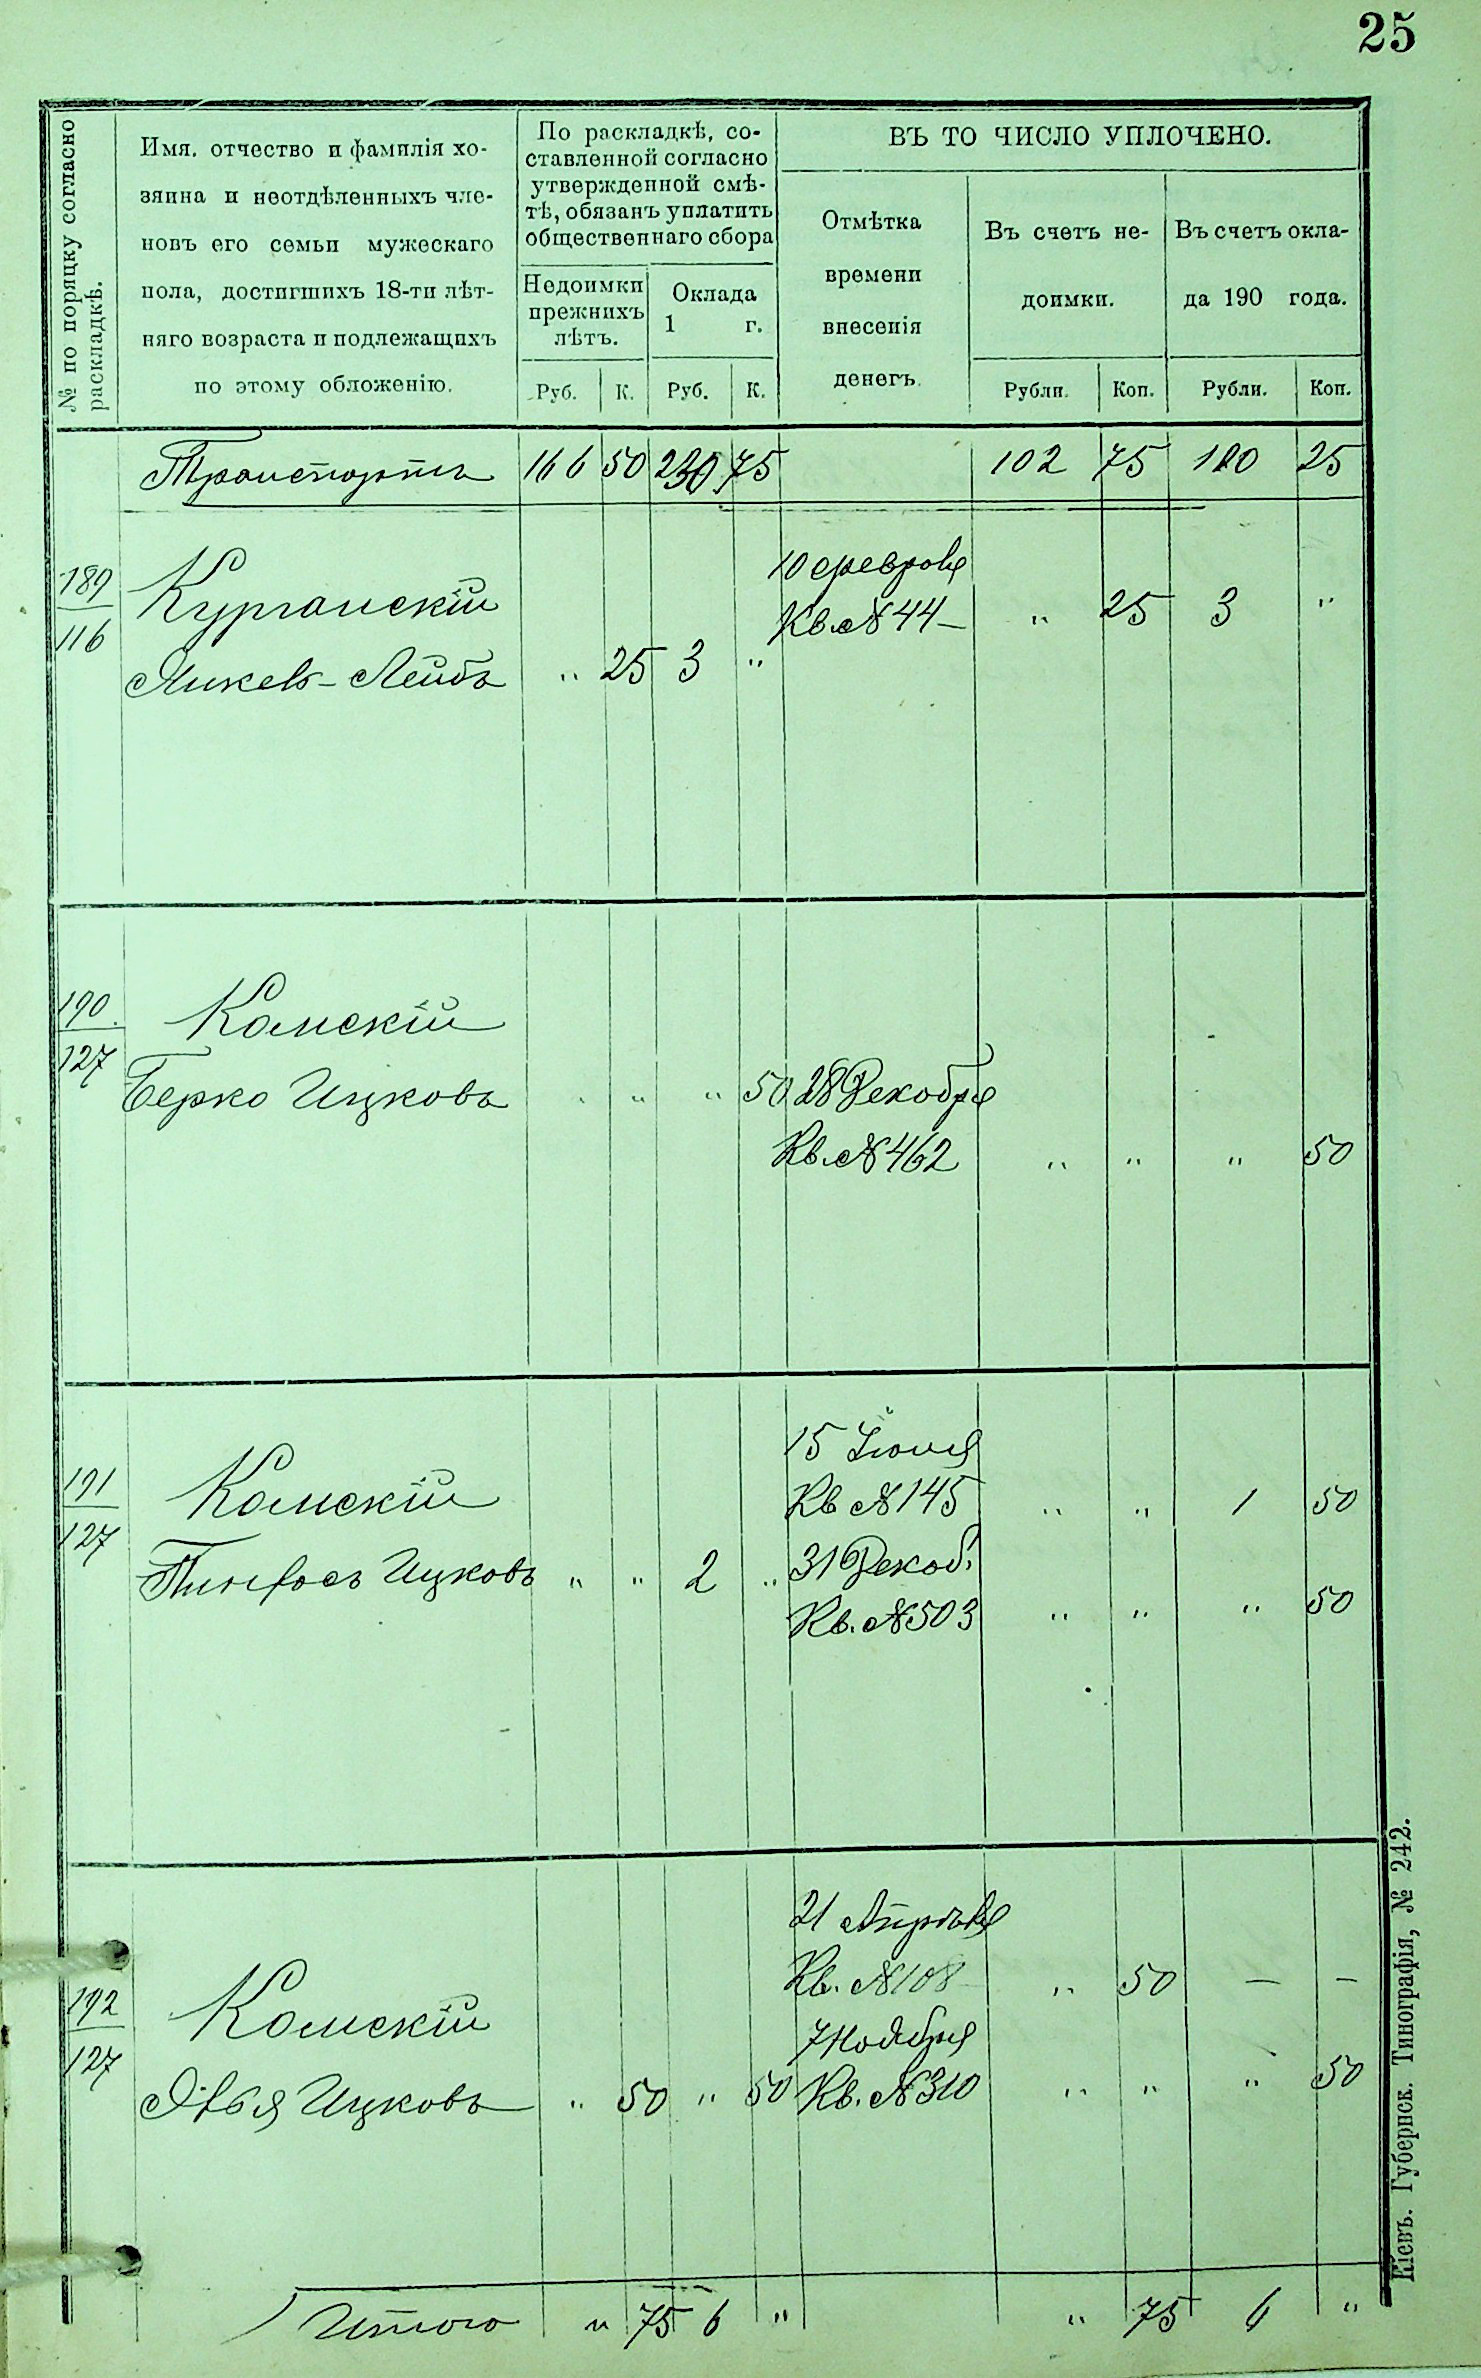 25
№ по порядку согласно
раскладкѣ.
Имя, отчество и фамилія хо-
зяина и неотдѣленныхъ чле-
новъ его семьи мужескаго
пола, достигшихъ 18-ти лѣт-
няго возраста и подлежащихъ
по этому обложенію.
По раскладкѣ, со-
ставленной согласно
утвержденной смѣ-
тѣ, обязанъ уплатить
общественнаго сбора
Недоимки
прежнихъ
лѣтъ.
Оклада
1 г.
ВЪ ТО ЧИСЛО УПЛОЧЕНО.
Отмѣтка
времени
внесенія
денегъ.
Въ счетъ не-
доимки.
Въ счетъ окла-
да 190 года.
Руб. К. Руб. К. Рубли. Коп. Рубли. Коп.
Транспортъ 166 50 230 75 102 75 120 25
189
116
Курганскій
Янкель-Лейбъ " 25 3 "
10 февраля
Кв. № 44 — " 25 3 "
190
127
Камскій
Берко Ицковъ " " " 50 28 Декабря
Кв. № 462 " " " 50
191
127
Камскій
Пинхосъ Ицковъ " " 2 "
15 Іюня
Кв № 145 " " 1 50
31 Декаб.
Кв. № 503 " " " 50
192
127
Камскій
Ицковъ " 50 " 50
21 Апрѣля
Кв. № 108 " 50 — —
7 Ноября
Кв. № 310 " " " 50
Итого " 75 6 " " 75 6 "
Кіевъ. Губернск. Типографія, № 242.